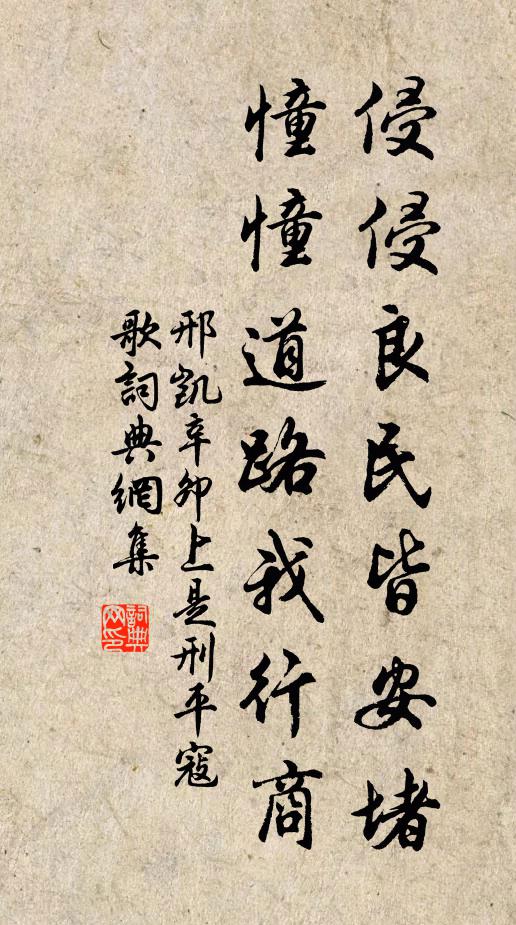 侵侵良民皆安堵
憧憧道路我行商
邢凱辛卯上是刑平寇
歌詞典網集
詞典網印